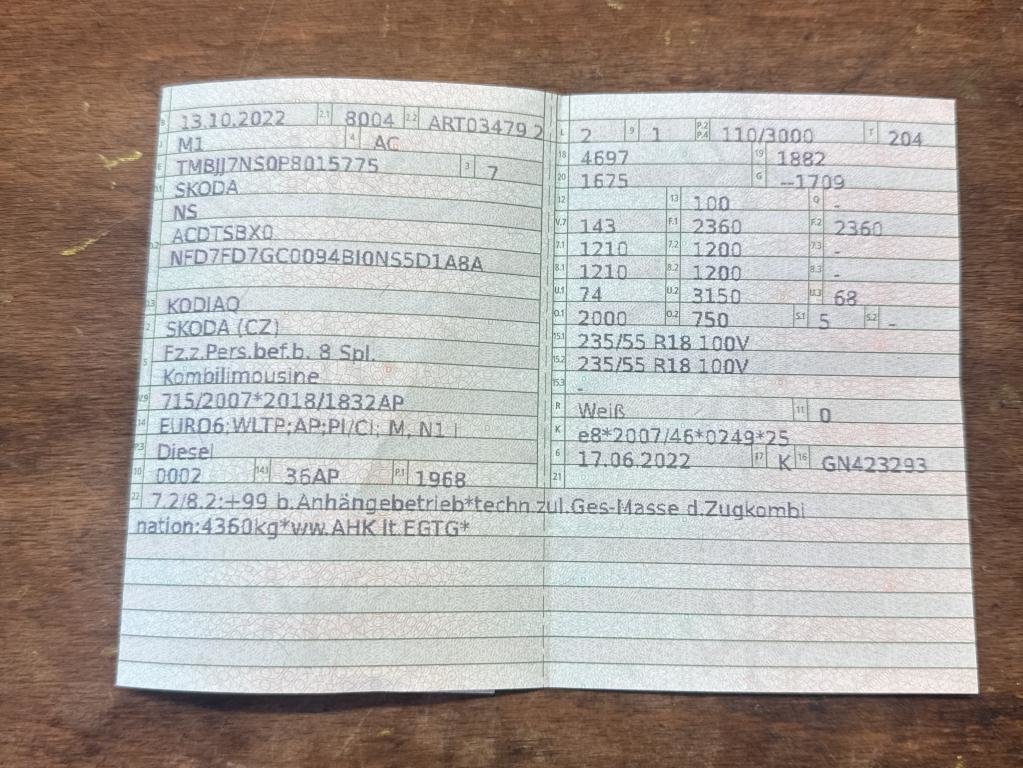 B 13.10.2022 2.1 8004 2.2 ART03479 2
J M1 4 AC
E TMBJJ7NS0P8015775 3 7
D.1 SKODA
NS
D.2 ACDTSBX0
NFD7FD7GC0094BI0NS5D1A8A
D.3 KODIAQ
2 SKODA (CZ)
5 Fz.z.Pers.bef.b. 8 Spl.
Kombilimousine
V.9 715/2007*2018/1832AP
14 EURO6;WLTP;AP;PI/CI; M, N1 I
P.3 Diesel
10 0002 14.1 36AP P.1 1968
L 2 9 1 P.2 P.4 110/3000 T 204
18 4697 19 1882
20 1675 G --1709
12 13 100 Q -
V.7 143 F.1 2360 F.2 2360
7.1 1210 7.2 1200 7.3 -
8.1 1210 8.2 1200 8.3 -
U.1 74 U.2 3150 U.3 68
O.1 2000 O.2 750 S.1 5 S.2 -
15.1 235/55 R18 100V
15.2 235/55 R18 100V
15.3 -
R Weiß 11 0
K e8*2007/46*0249*25
6 17.06.2022 17 K 16 GN423293
21
22 7.2/8.2:+99 b.Anhängebetrieb*techn.zul.Ges-Masse d.Zugkombi
nation:4360kg*ww.AHK lt.EGTG*